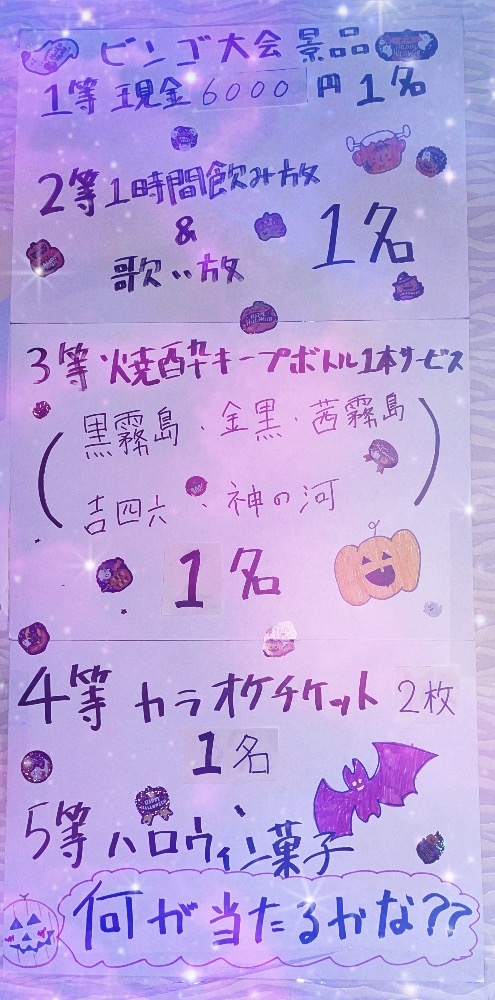 ビンゴ大会 景品
1等 現金 6000 円 1名
2等 1時間飲み放
&
歌い放
1名
3等 焼酎キープボトル1本サービス
(黒霧島・金黒・茜霧島
吉四六・神の河)
1名
4等 カラオケチケット 2枚
1名
5等 ハロウィン菓子
何が当たるかな??